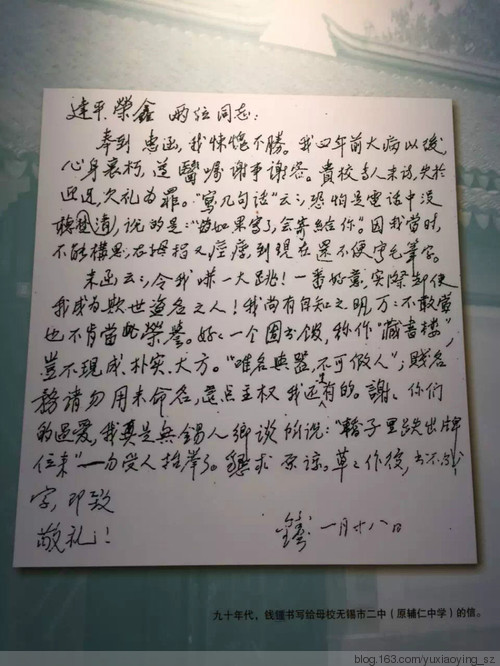 建平、榮鑫 两位同志:
奉到 惠函,我悚愧不勝。我四年前大病以後,
心身衰朽,遵醫嘱謝事謝客。貴校舍人来谈,失於
迎迓,欠礼为罪。“寫几句话”云云,恐怕是電话中没
聽清,说的是:“我如果寫了,会寄給你”。因我當时
不能構思,右拇指又痉挛,到現在還不便寫毛筆字。
来函云云,令我嚇一大跳!一番好意,实際却使
我成为欺世盗名之人!我尚有自知之明,万万不敢當
也不肯當此榮譽。好好一个图书馆,称作“藏書樓”,
豈不現成、朴实、大方。“唯名與器,不可假人”;賤名
務請勿用来命名,這点主权我还是有的。謝謝你们
的過爱,我要是無錫人鄉談所说:“轎子里跌出牌
位来”——勿受人抬举了。懇求 原谅。草草作復,书不成
字,即致
敬礼!
鍾書 一月十八日
九十年代,钱锺书写给母校无锡市二中(原辅仁中学)的信。
blog.163.com/yuxiaoying_sz